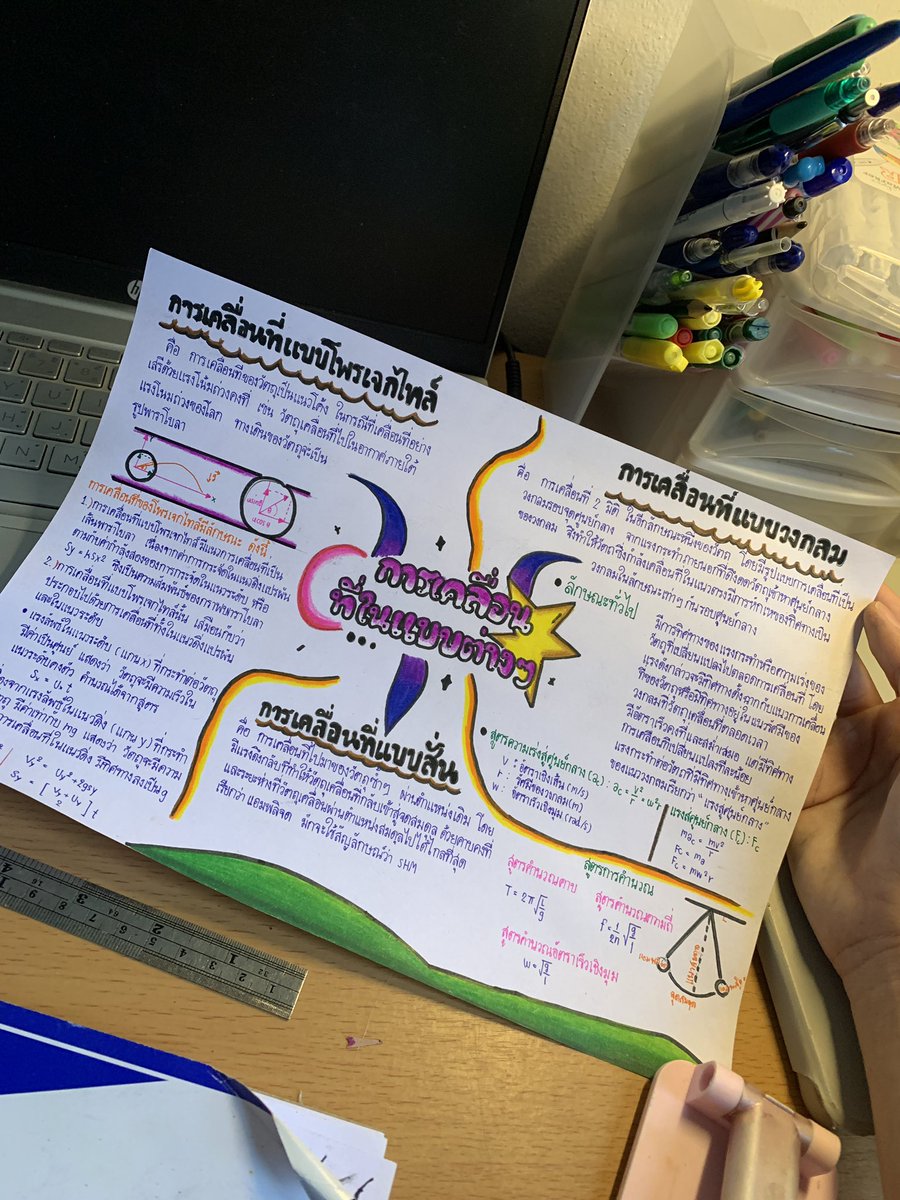 การเคลื่อนที่แบบโพรเจกไทล์
คือ การเคลื่อนที่ของวัตถุเป็นแนวโค้ง ในกรณีที่เคลื่อนที่อย่าง
เสรีด้วยแรงโน้มถ่วงคงที่ เช่น วัตถุเคลื่อนที่ไปในอากาศภายใต้
แรงโน้มถ่วงของโลก ทางเดินของวัตถุจะเป็น
รูปพาราโบลา
การเคลื่อนที่ของโพรเจกไทล์มีลักษณะ ดังนี้
1.)การเคลื่อนที่แบบโพรเจกไทล์มีแนวการเคลื่อนที่เป็น
เส้นพาราโบลา เนื่องจากค่าการกระจัดในแนวดิ่งแปรผัน
ตามกับค่ากำลังสองของการกระจัดในแนวระดับ หรือ
Sy = kSx² ซึ่งเป็นความสัมพันธ์ของกราฟพาราโบลา
2.)การเคลื่อนที่แบบโพรเจกไทล์นั้น เสมือนกับว่า
ประกอบไปด้วยการเคลื่อนที่ทั้งในแนวดิ่ง
และในแนวระดับ
• แรงลัพธ์ในแนวระดับ (แกนx) ที่กระทำต่อวัตถุ
มีค่าเป็นศูนย์ แสดงว่า วัตถุจะมีความเร็วใน
แนวระดับคงตัว คำนวณได้จากสูตร
Sx = Ux t
จากแรงลัพธ์ในแนวดิ่ง (แกน y) ที่กระทำ
มีค่าเท่ากับ mg แสดงว่า วัตถุจะมีความ
การเคลื่อนที่ในแนวดิ่ง มีทิศทางลงเป็น g
Vy² = Uy² + 2gsy
Sy = [
t
การเคลื่อน
ที่ในแบบต่างๆ
การเคลื่อนที่แบบวงกลม
คือ การเคลื่อนที่ 2 มิติ ในอีกลักษณะหนึ่งของวัตถุ โดยมีรูปแบบการเคลื่อนที่เป็น
วงกลมรอบจุดศูนย์กลาง จากแรงกระทำภายนอกที่ดึงดูดวัตถุเข้าหาศูนย์กลาง
ของวงกลม ซึ่งทำให้วัตถุซึ่งกำลังเคลื่อนที่ในแนวตรงมีการหักเหของทิศทางเป็น
วงกลมในลักษณะเท่าๆ กันรอบศูนย์กลาง
• ลักษณะทั่วไป
มีการทิศทางของแรงกระทำหรือความเร่งของ
วัตถุที่เปลี่ยนแปลงไปตลอดการเคลื่อนที่ โดย
แรงดังกล่าวจะมีทิศทางตั้งฉากกับแนวการเคลื่อน
ที่ของวัตถุหรือมีทิศทางอยู่ในแนวรัศมีของ
วงกลมที่วัตถุเคลื่อนที่ตลอดเวลา
มีอัตราเร็วคงที่และสม่ำเสมอ แต่มีทิศทาง
การเคลื่อนที่เปลี่ยนแปลงทีละน้อย
แรงกระทำต่อวัตถุมีทิศทางเข้าหาศูนย์กลาง
ของแนววงกลมเรียกว่า "แรงสู่ศูนย์กลาง"
• สูตรความเร่งสู่ศูนย์กลาง (ac) : ac = v²/r = ω²r
v : อัตราเร็วเชิงเส้น (m/s)
r : รัศมีของวงกลม (m)
w : อัตราเร็วเชิงมุม (rad/s)
แรงสู่ศูนย์กลาง (Fc) : Fc
mac = mv²/r
Fc = ma
Fc = mω²r
การเคลื่อนที่แบบสั่น
คือ การเคลื่อนที่ไปมาของวัตถุซ้ำๆ ผ่านตำแหน่งเดิม โดย
มีแรงดึงกลับที่ทำให้วัตถุเคลื่อนที่กลับเข้าสู่จุดสมดุล ด้วยคาบคงที่
และระยะห่างที่วัตถุเคลื่อนผ่านตำแหน่งสมดุลไปได้ไกลที่สุด
เรียกว่า แอมพลิจูด มักจะใช้สัญลักษณ์ว่า SHM
สูตรการคำนวณ
สูตรคำนวณคาบ
T = 2π√L/g
สูตรคำนวณความถี่
f = 1/2π √g/l
สูตรคำนวณอัตราเร็วเชิงมุม
w = √g/l